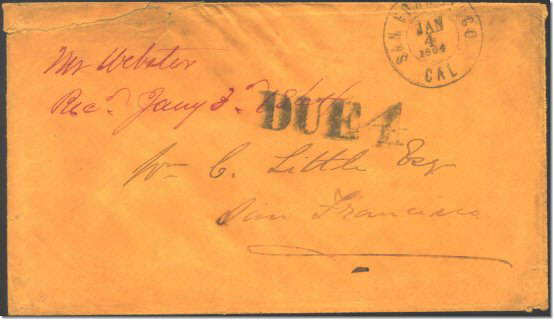 SAN FRANCISCO
JAN
4
1864
CAL
Mr Webster
Recd. Jany 3.d 1864
DUE 4
Wm C. Little Esq
San Francisco